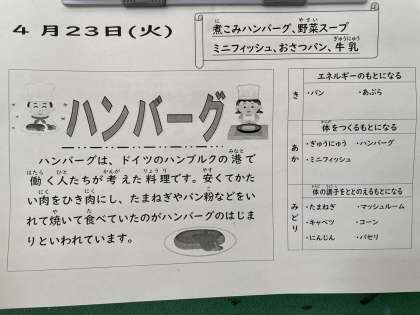 4月23日(火)
煮こみハンバーグ、野菜スープ
ミニフィッシュ、おさつパン、牛乳
ハンバーグ
ハンバーグは、ドイツのハンブルクの港で
働く人たちが考えた料理です。安くてかた
い肉をひき肉にし、たまねぎやパン粉などをい
れて焼いて食べていたのがハンバーグのはじま
りといわれています。
き
エネルギーのもとになる
・パン ・あぶら
あか
体をつくるもとになる
・ぎゅうにゅう ・ハンバーグ
・ミニフィッシュ
みどり
体の調子をととのえるもとになる
・たまねぎ ・マッシュルーム
・キャベツ ・コーン
・にんじん ・パセリ